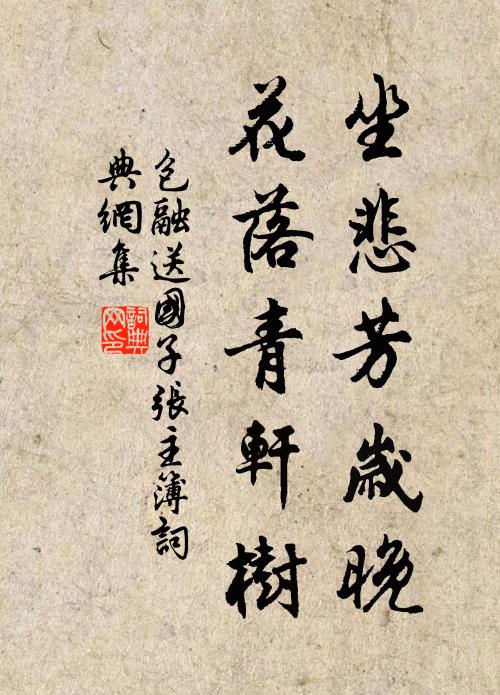 坐悲芳歲晚
花落青軒樹
包融送國子張主簿詞
典網集
詞典
网印